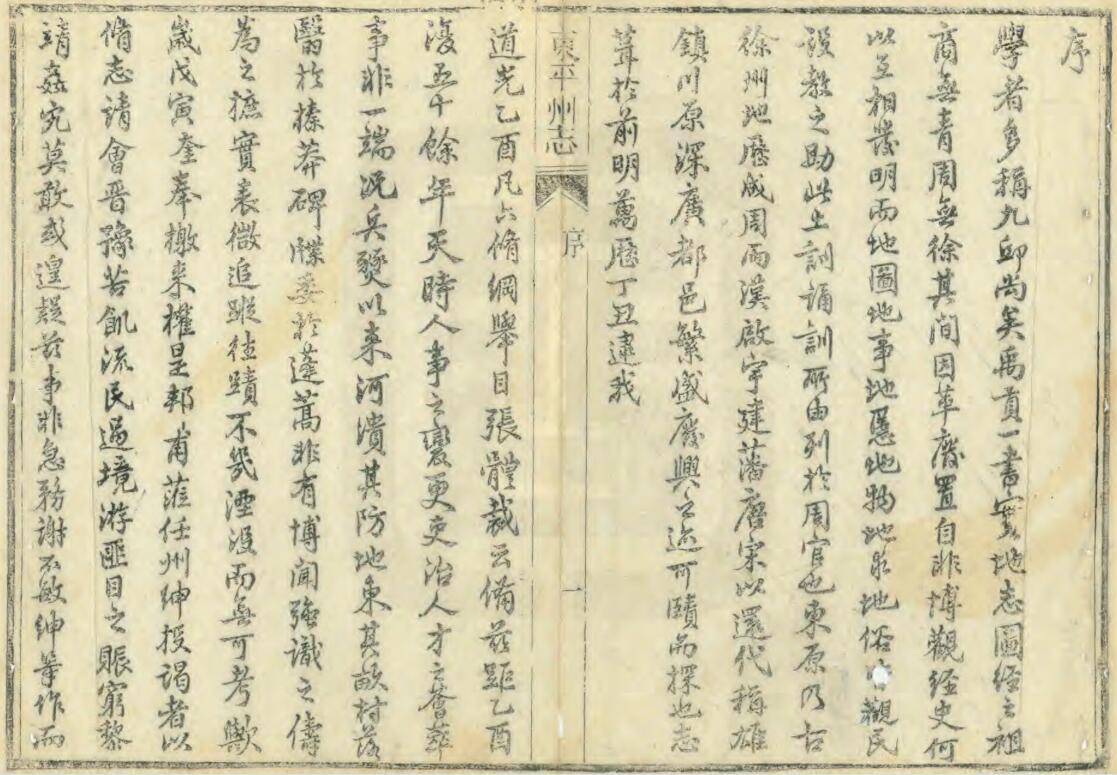 序
學者多稱九邱尚矣禹貢一書實地志圖經之祖
商無青周無徐其間因革廢置自非博觀經史何
以互相發明而地圖地事地慝地物地求地俗觀民
設教之助此土訓誦訓所由列於周官也東原乃古
徐州地歷成周兩漢啟宇建藩唐宋以還代稱雄
鎮川原深廣都邑繁盛廢興之迹可賾而探也志
葺於前明萬歷丁丑逮我
東平州志
序
一
道光乙酉凡六脩綱舉目張體裁云備茲距乙酉
復五十餘年天時人事之變更吏治人才之薈萃
事非一端況兵燹以來河潰其防地東其畝村落
翳於榛莽碑牒委於蓬蒿非有博聞強識之儔
為之摭實表微追蹤往蹟不幾湮沒而無可考歟
歲戊寅奎奉檄来權是邦甫蒞任州紳投謁者以
脩志請會晋豫苦飢流民過境游匪目之賑窮黎
靖姦宄莫敢或遑疑茲事非急務謝不敏紳等作而